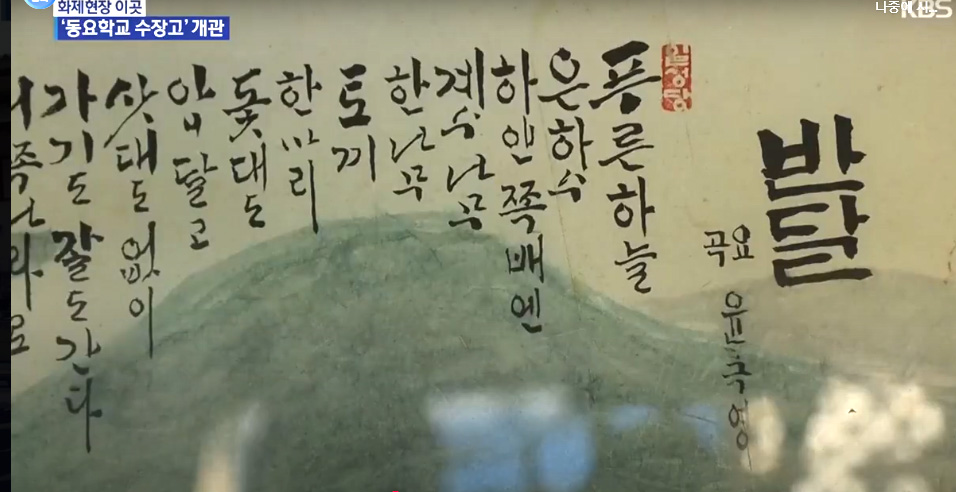 화제현장 이곳
'동요학교 수장고' 개관
나중에
KBS
반달
요곡 윤극영
푸른하늘
은하수
하얀 쪽배엔
계수나무
한나무
토끼
한마리
돛대도
아니달고
삿대도 없이
가기도 잘도 간다
서쪽나라로